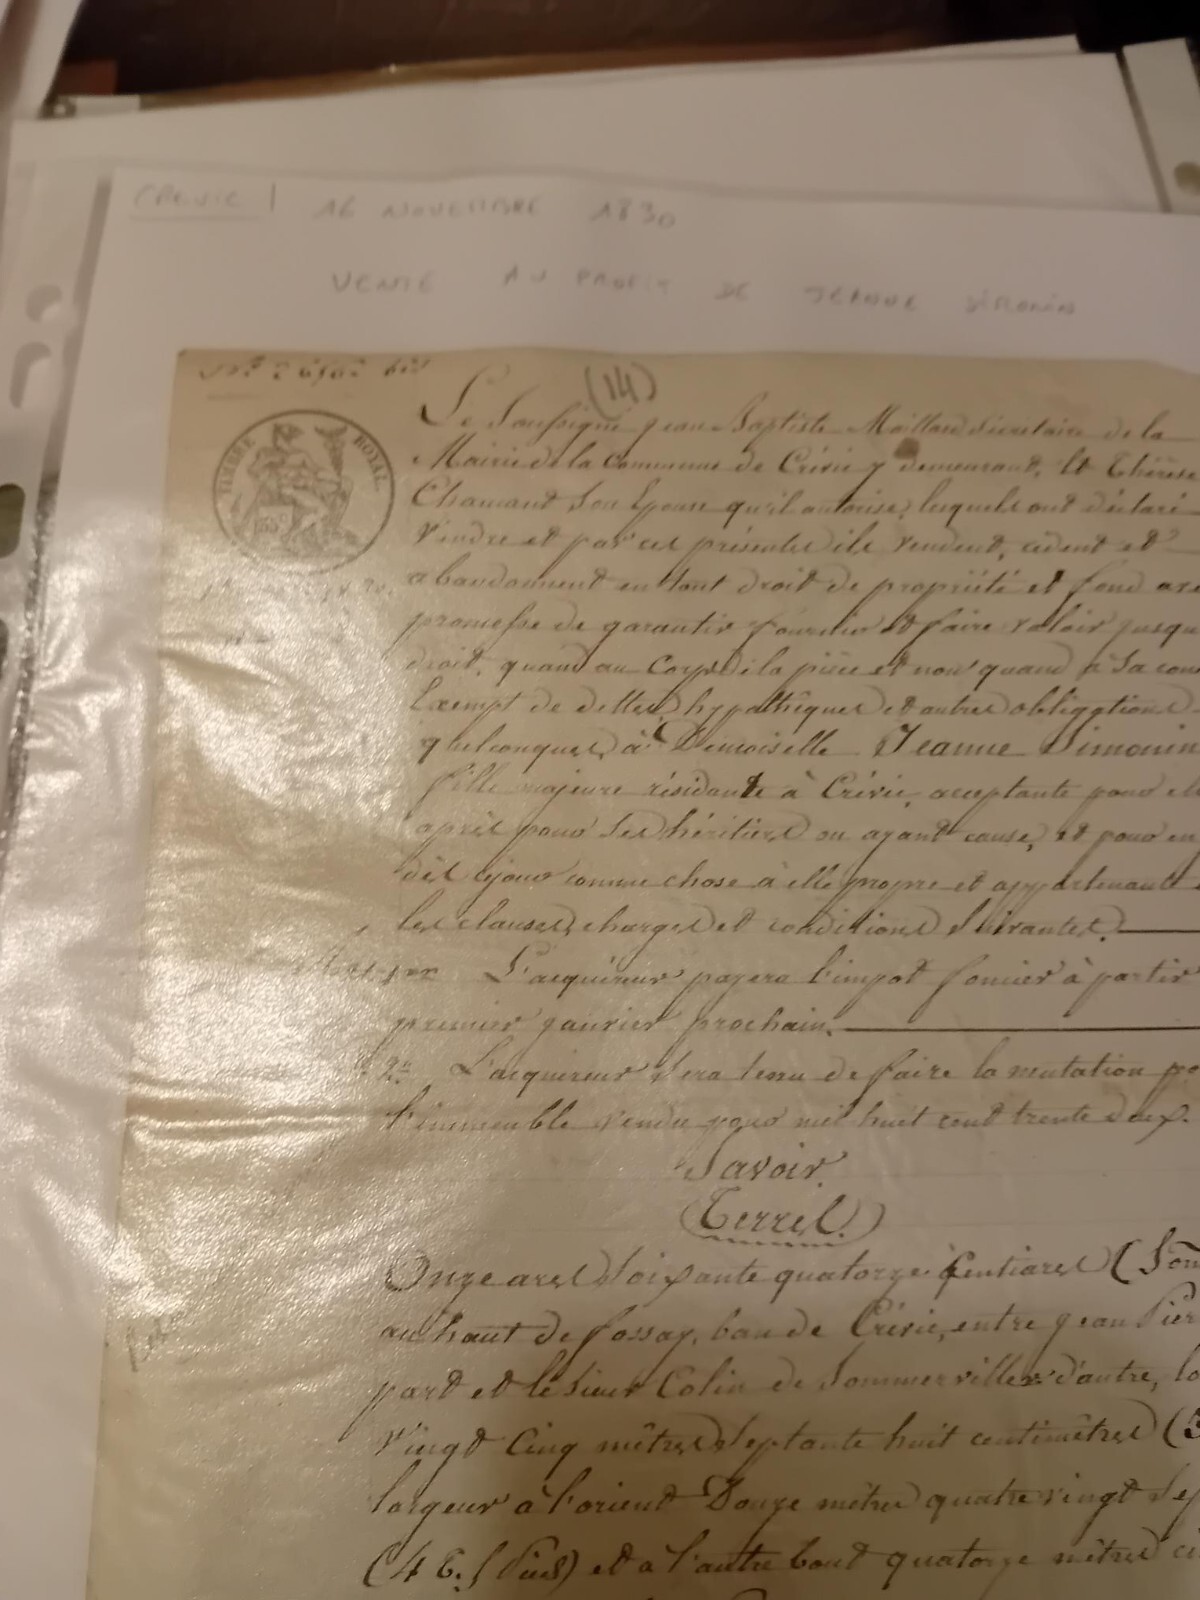 CREVIC 16 NOVEMBRE 1830
VENTE AU PROFIT DE JEANNE SIMONIN
(14)
TIMBRE ROYAL
Le Soussigné Jean Baptiste Maillard Sécretaire de la
Mairie de la Commune de Crévic y demeurant, et Thérèse
Chamant Son Epouse qu'il autorise, lesquels ont déclaré
Vendre et par ces présentes ils vendent, cedent et
abandonnent en tout droit de propriété et fond avec
promesse de garantir fournir et faire valoir jusqu
droit, quand au Corps de la pièce et non quand à Sa con
Exempt de dettes, hypothêques et autres obligations
quelconques, à Demoiselle Jeanne Simonin
fille majeure résidante à Crévic, acceptante pour el
après pour Ses héritiers ou ayant cause, et pour en
dès ce jour comme chose à elle propre et appartenante
les clauses, charges et conditions Suivantes.
L'acquéreur payera l'impot foncier à partir
premier janvier prochain.
2º L'acquereur Sera tenu de faire la mutation po
l'immeuble vendu pour mil huit cent trente deux.
Savoir.
(Terres.)
Onze ares Soixante quatorze Centiares (
au haut de fossay, ban de Crévic, entre Jean Pier
part et le Sieur Colin de Sommerviller d'autre, lo
vingt Cinq mètres Septante huit centimètres (5
largeur à l'orient Douze mètres quatre vingt Sep
(4 E. Pieds) et à l'autre bout quatorze mètres ci